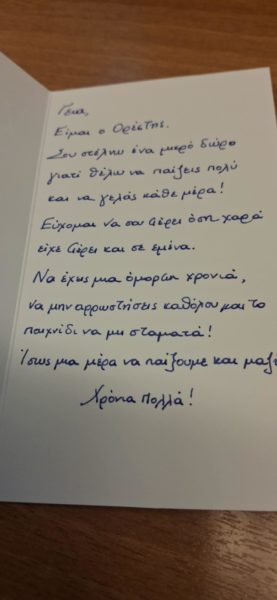 Γεια,
Είμαι ο Ορέστης.
Σου στέλνω ένα μικρό δώρο
γιατί θέλω να παίξεις πολύ
και να γελάς κάθε μέρα!
Εύχομαι να σου φέρει όση χαρά
είχε φέρει και σε εμένα.
Να έχεις μια όμορφη χρονιά,
να μην αρρωστήσεις καθόλου και το
παιχνίδι να μη σταματά!
Ίσως μια μέρα να παίξουμε και μαζί
Χρόνια Πολλά!